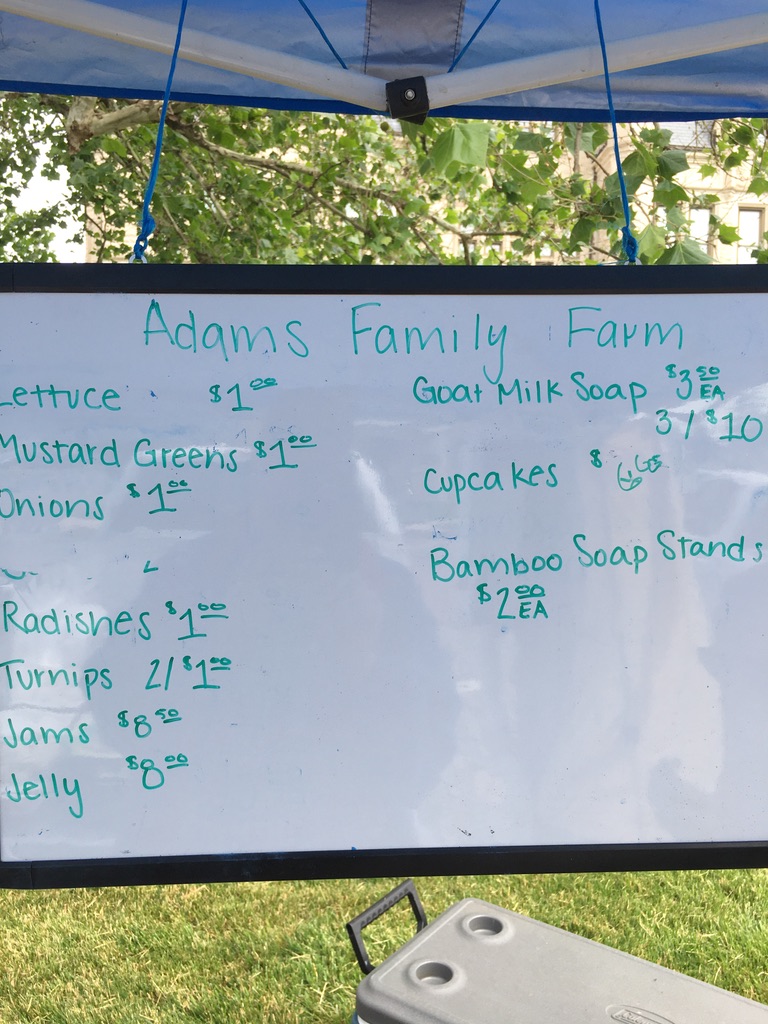 Adams Family Farm
Lettuce $1.00
Mustard Greens $1.00
Onions $1.00
Radishes $1.00
Turnips 2/$1.00
Jams $8.50
Jelly $8.00
Goat Milk Soap $3.50 EA
3/$10
Cupcakes $
Bamboo Soap Stands
$2.00 EA